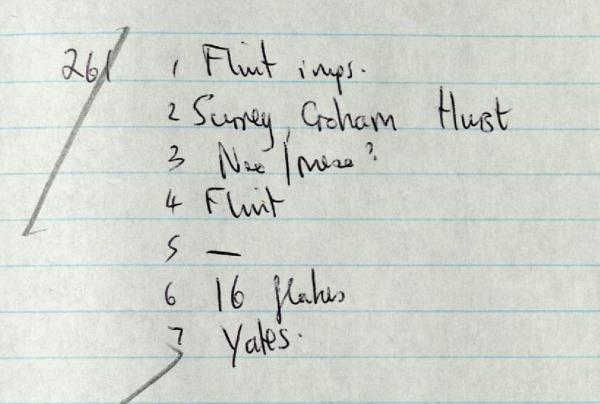 261 1 Flint imps.
2 Surrey, Croham Hurst
3 Neo/meso?
4 Flint
5 —
6 16 flakes
7 Yates.